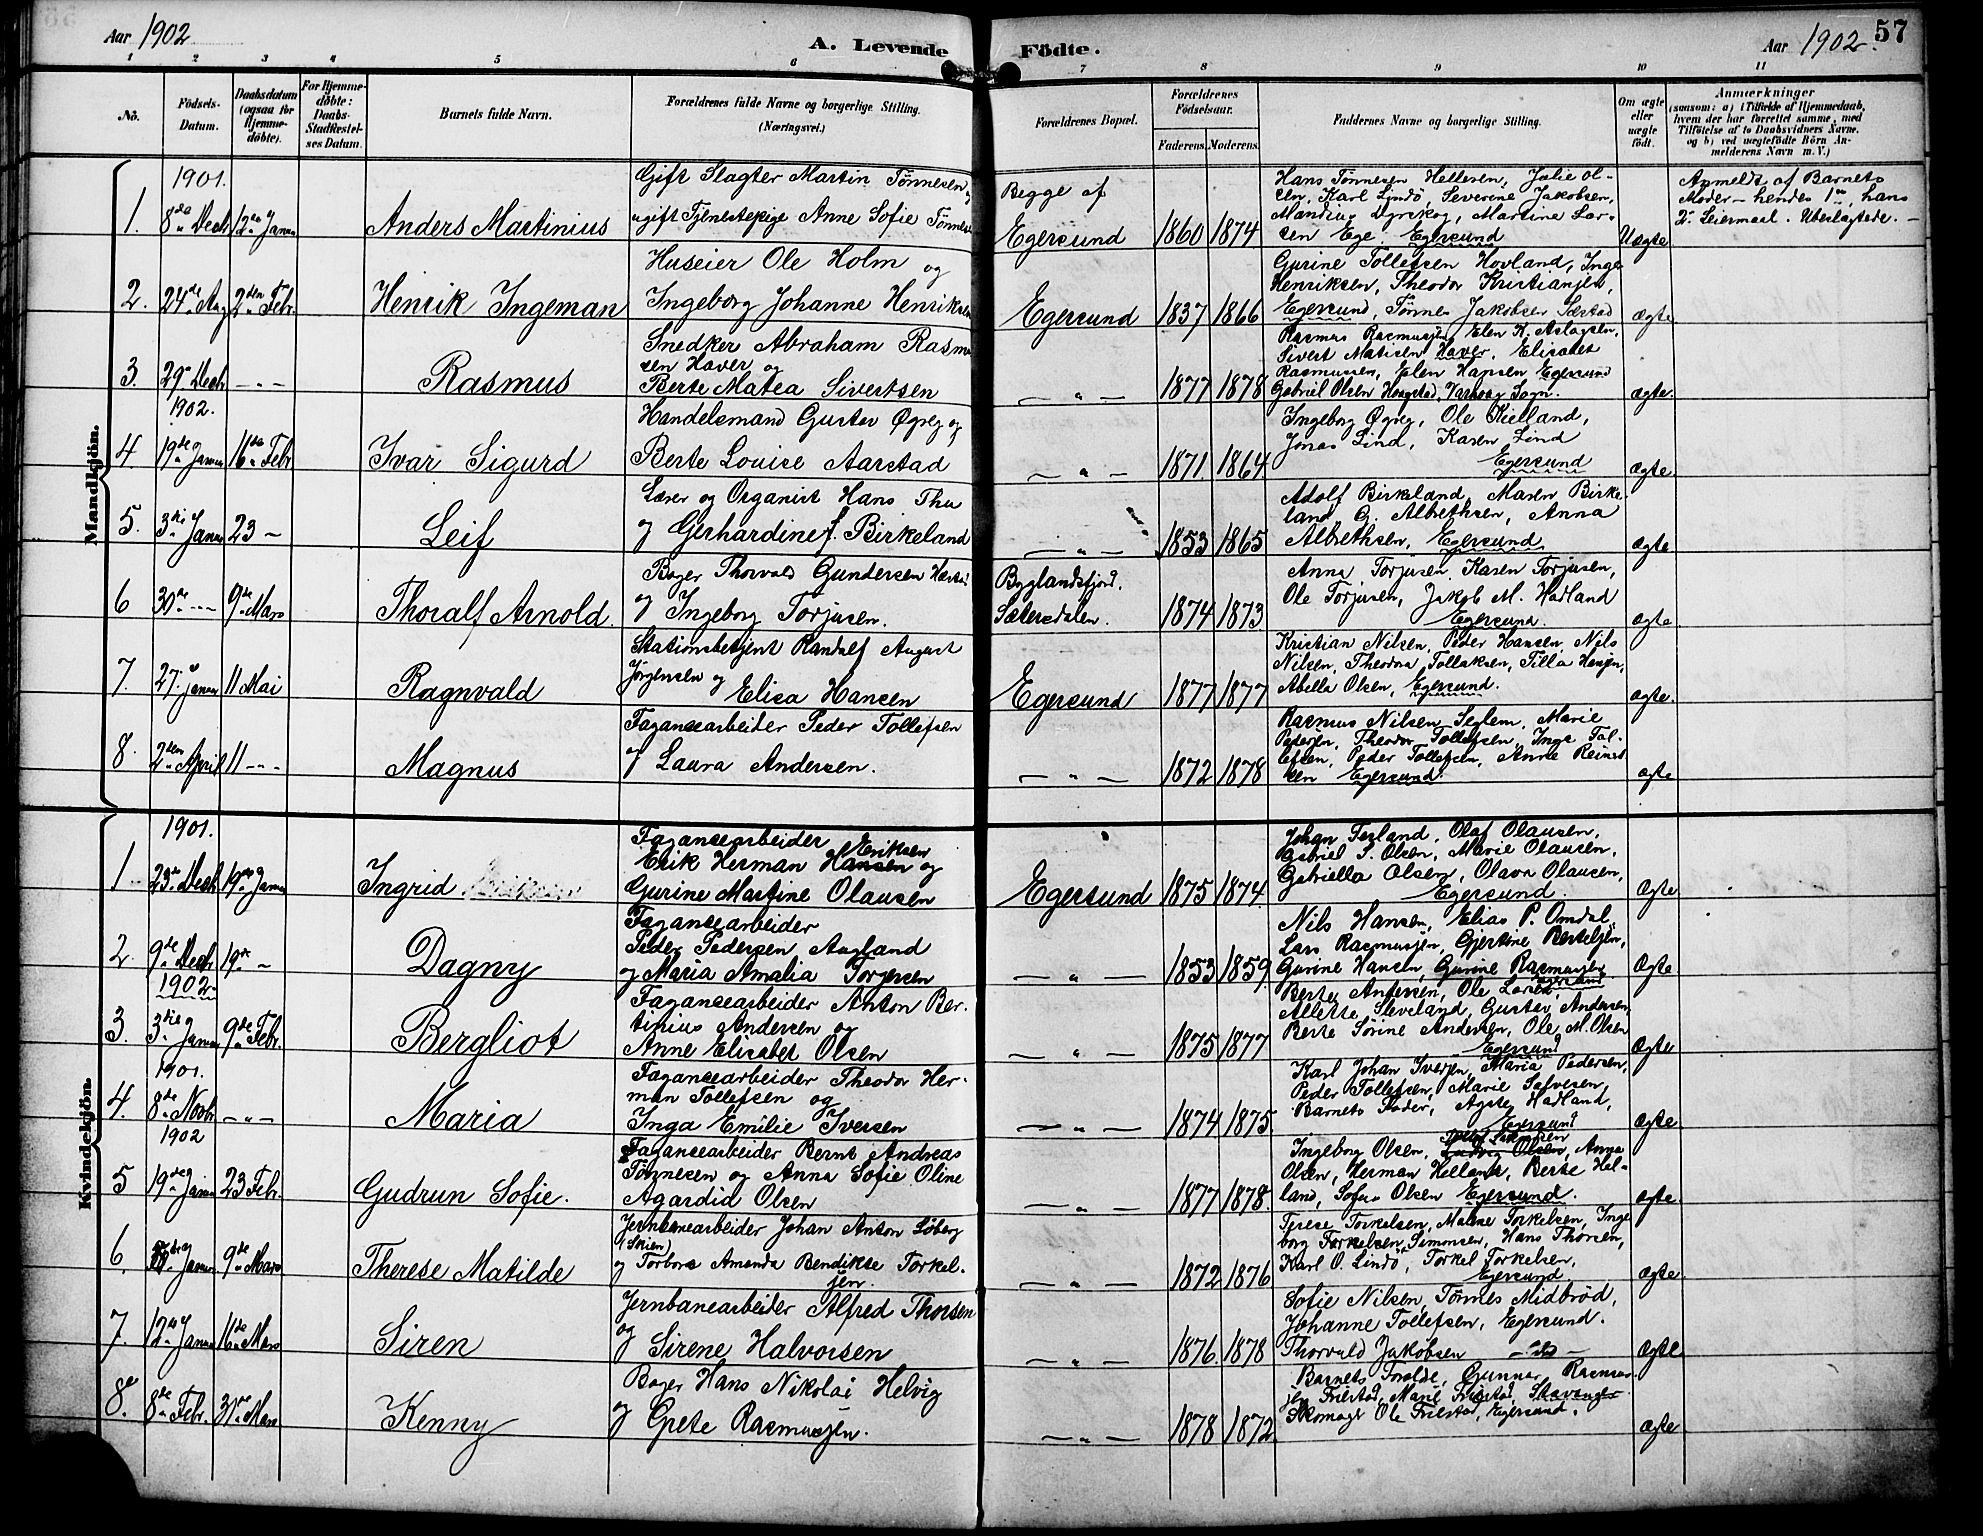 Aar 1902
A. Levende Födte.
Aar 1902.
57
1 2 3 4 5 6 7 8 9 10 11
No.
Födsels-Datum.
Daabsdatum (ogsaa for Hjemme-döbte).
For Hjemme-döbte: Daabs-Stadfæstel-ses Datum.
Barnets fulde Navn.
Forældrenes fulde Navne og borgerlige Stilling. (Næringsvei.)
Forældrenes Bopæl.
Forældrenes Födselsaar.
Faderens. Moderens.
Faddernes Navne og borgerlig Stilling.
Om ægte eller uægte födt.
Anmærkninger
(saasom: a) i Tilfælde af Hjemmedaab, hvem der har forrettet samme, med Tilföielse af to Daabsvidners Navne, og b) ved uægtefödte Börn An-melderens Navn m.V.)
Mandkjön.
1901.
1. 8de Decb 12te Janua
Anders Martinius
Gift Slagter Martin Tønnesen og
ugift Tjenestepige Anne Sofie Tønnesen
Begge af
Egersund
1860 1874
Hans Tønnesen Hellesen, Jalie Ol-
sen, Karl Lindö, Severine Jakobsen,
Mandius Dyrskog, Martine Lar-
sen Ege. Egersund
Uægte
Anmeldt af Barnets
Moder – hendes 1ste, hans
2det Leiermaal. Ubeslægtede. –
2. 24de Aug 2den Febr.
Henrik Ingeman
Huseier Ole Holm og
Ingeborg Johanne Henriksen
Egersund
1837 1866
Gurine Tollefsen Hovland, Inge
Henriksen, Theodor Kristiansen,
Egersund, Tønnes Jakobsen Sæstad
Ægte
3. 29de Decb – „ –
Rasmus
Snedker Abraham Rasmus
sen Haver og
Berte Matea Sivertsen
– „ –
1877 1878
Rasmus Rasmussen, Elen K. Aslagsen,
Sivert Matisen Haver, Elisabet
Rasmussen, Elen Hansen Egersund
Gabriel Olsen Haagstad, Varhaug Sogn.
ægte.
1902.
4. 19de Janua 16de Febr
Ivar Sigurd
Handelsmand Gustav Øgrey og
Berte Louise Aarstad
– „ –
1871. 1864.
Ingeborg Øgrey, Ole Kielland,
Jonas Lind, Karen Lind
Egersund
Ægte.
5. 3die Janua 23 –
Leif
Lærer og Organist Hans Thu
og Gerhardine f. Birkeland
– „ –
1853 1865
Adolf Birkeland, Maren Birke-
land G. Albrethsen, Anna
Albrethsen, Egersund
Ægte
6 30de – – – 9de Mars
Thoralf Arnold.
Bager Thorvald Gundersen
og Ingeborg Torjusen.
Byglandsfjord.
Sætersdalen.
1874 1873
Anna Torjusen, Karen Torjusen,
Ole Torjusen, Jakob M. Hadland
Egersund.
ægte
7. 27de Janua 11 Mai
Ragnvald
Stationsbetjent Randulf August
Jørgensen og
Elisa Hansen
Egersund
1877 1877
Kristian Nilsen, Peder Hansen, Nils
Nilsen, Theodora Tollaksen, Tilla Hansen,
Abella Olsen, Egersund.
ægte.
8. 2den April 11 – „ –
Magnus
Fayancearbeider Peder Tollefsen
og Laura Andersen.
– „ –
1872 1878
Rasmus Nilsen Seglem, Marie
Pedersen, Theodor Tollefsen, Inge Tol-
lefsen, Peder Tollefsen, Anne Reinert
sen Egersund.
ægte
Kvindekjön.
1901.
1 23de Decb 19de Janua
Ingrid
Fayancearbeider
Eriksen
Erik Herman Hansen og
Gurine Martine Olausen
Egersund
1875 1874.
Johan Tesland, Olaf Olausen,
Gabriel S. Olsen, Marie Olausen,
Gabriella Olsen, Olava Olausen,
Egersund.
Ægte
2. 9de Decb. 19de –
Dagny
Fayancearbeider
Peder Pedersen Augland
og Maria Amalia Torjersen
– „ –
1853 1859
Nils Hansen, Elias P. Omdal,
Lars Rasmussen, Gjertine Bertelsen,
Gurine Hansen, Gurine Rasmussen
Egersund
Ægte
1902.
3. 3die Janua 9de Febr.
Bergliot
Fayancearbeider Anton Ber-
tinius Andersen og
Anne Elisabet Olsen
– „ –
1875 1877
Berte Andersen, Ole Larsen,
Alette Sleveland, Gustav Andersen,
Berte Sørine Andersen, Ole M. Olsen
Egersund
Ægte
1901.
4. 8de Novbr – „ –
Maria
Fayancearbeider Theodor Her-
man Tollefsen og
Inga Emilie Iversen
– „ –
1874 1875.
Karl Johan Iversen, Maria Pedersen,
Peder Tollefsen, Marie Salvesen,
Barnets Fader, Agate Hadland,
Egersund
Ægte.
1902
5 19de Janua 23 Febr.
Gudrun Sofie.
Fayancearbeider Bernt Andreas
Tønnesen og Anna Sofie Oline
Agardid Olsen
– „ –
1877 1878.
Ingeborg Olsen, Ludvig Olsen, Anna
Olsen, Herman Helland, Berte Hel-
land, Sofus Olsen Egersund.
ægte.
6. Janua 9de Mars
Therese Matilde
Jernbanearbeider Johan Anton Löberg
(Skien)
og Torbora Amanda Bendikse Torkel-
sen.
– „ –
1872 1876
Terese Torkelsen, Malene Torkelsen, Inge
borg Torkelsen, Simonsen, Hans Thorsen,
Karl O. Lindö, Torkel Torkelsen,
Egersund
Ægte.
7. 12te Janua 16de Mars
Siren
Jernbanearbeider Alfred Thorsen
og
Sirene Halvorsen
– „ –
1876. 1878
Sofie Nilsen, Tönnes Midbröd,
Johanne Tollefsen, Egersund.
Thorvald Jakobsen – do –
Ægte
8. 8de Febr. 31te Mars
Kenny
Bager Hans Nikolai Helvig
og Grete Rasmussen.
– „ –
1878 1872.
Barnets Foræld, Gunnar Rasmus-
sen Frilstad, Marie Frilstad, Stavanger.
Skomager Ole Frilstad, Egersund.
Ægte